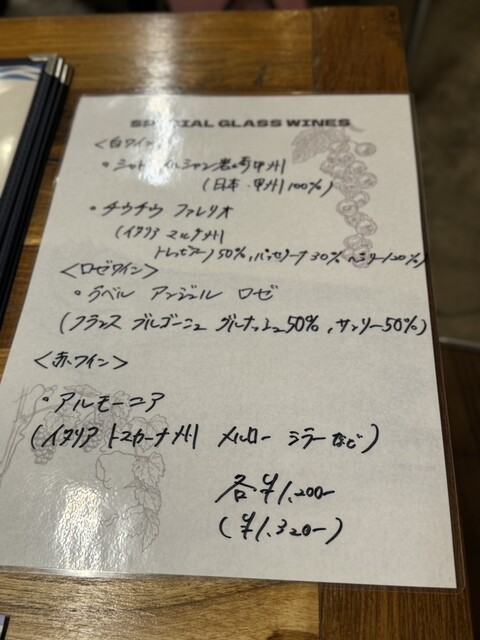 SPECIAL GLASS WINES
<白ワイン>
・シャトーメルシャン岩崎甲州
(日本・甲州100%)
・チウチウ ファレリオ
(イタリア マルケ州
トレッビアーノ50%, パッセリーナ30% ペコリーノ20%)
<ロゼワイン>
・ラベル アンジェル ロゼ
(フランス ブルゴーニュ グルナッシュ50%, サンソー50%)
<赤ワイン>
・アルモーニア
(イタリア トスカーナ州 メルロー シラーなど)
各¥1,200-
(¥1,320-)